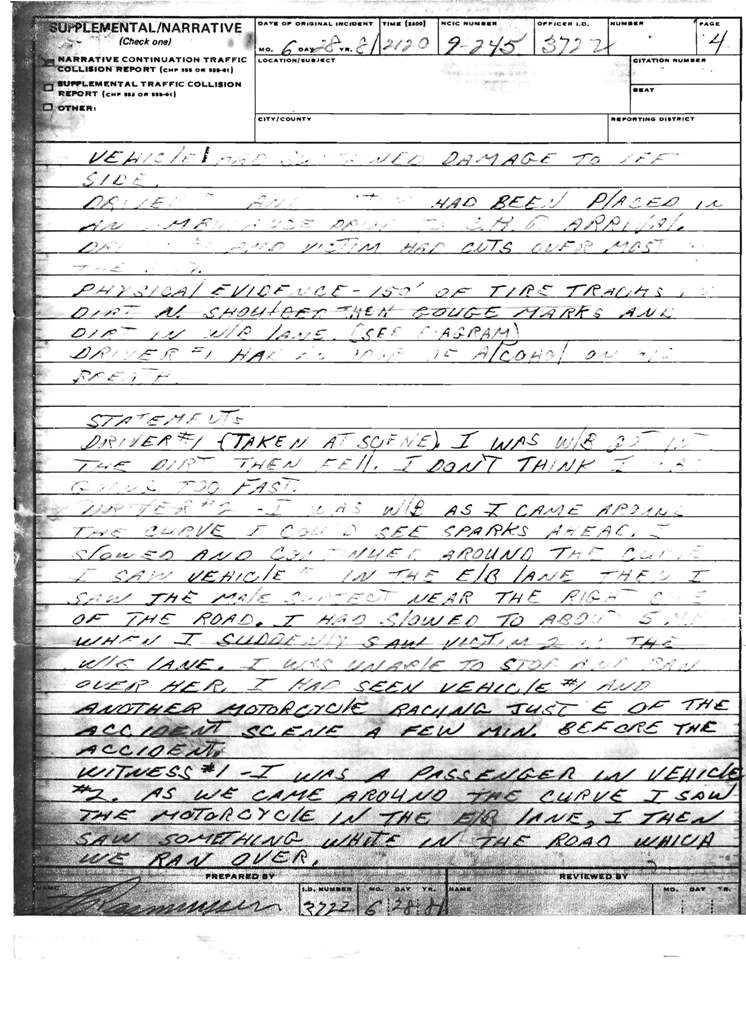 SUPPLEMENTAL/NARRATIVE
(Check one)
NARRATIVE CONTINUATION TRAFFIC
COLLISION REPORT (CHP 555 OR 555-01)
SUPPLEMENTAL TRAFFIC COLLISION
REPORT (CHP 555 OR 555-01)
OTHER:
DATE OF ORIGINAL INCIDENT TIME (2400) NCIC NUMBER OFFICER I.D. NUMBER PAGE
MO. 6 DAY 28 YR. 81 2120 9-245 3722 4
LOCATION/SUBJECT
CITATION NUMBER
BEAT
CITY/COUNTY
REPORTING DISTRICT
VEHICLE 1 HAD DAMAGE TO
SIDE.
HAD BEEN PLACED IN
AN ARRIVAL.
AND VICTIM HAD CUTS OVER MOST
PHYSICAL EVIDENCE - 150' OF TIRE TRACKS
DIRT N. SHOULDER THEN GOUGE MARKS AND
DIRT IN W/B LANE. (SEE DIAGRAM)
DRIVER #1 HAD OF ALCOHOL ON
BREATH.
STATEMENTS
DRIVER #1 (TAKEN AT SCENE) I WAS W/B
THE DIRT THEN FELL. I DON'T THINK I WAS
GOING TOO FAST.
DRIVER #2 - I WAS W/B AS I CAME AROUND
THE CURVE I COULD SEE SPARKS AHEAD. I
SLOWED AND CONTINUED AROUND THE CURVE
I SAW VEHICLE IN THE E/B LANE THEN I
SAW THE MALE SUBJECT NEAR THE RIGHT
OF THE ROAD. I HAD SLOWED TO ABOUT 5
WHEN I SUDDENLY SAW VICTIM 2 IN THE
W/B LANE. I WAS UNABLE TO STOP AND RAN
OVER HER. I HAD SEEN VEHICLE #1 AND
ANOTHER MOTORCYCLE RACING JUST E OF THE
ACCIDENT SCENE A FEW MIN. BEFORE THE
ACCIDENT.
WITNESS #1 - I WAS A PASSENGER IN VEHICLE
#2. AS WE CAME AROUND THE CURVE I SAW
THE MOTORCYCLE IN THE E/B LANE, I THEN
SAW SOMETHING WHITE IN THE ROAD WHICH
WE RAN OVER.
PREPARED BY REVIEWED BY
NAME I.D. NUMBER MO. DAY YR. NAME MO. DAY YR.
Rasmussen 3722 6 28 81